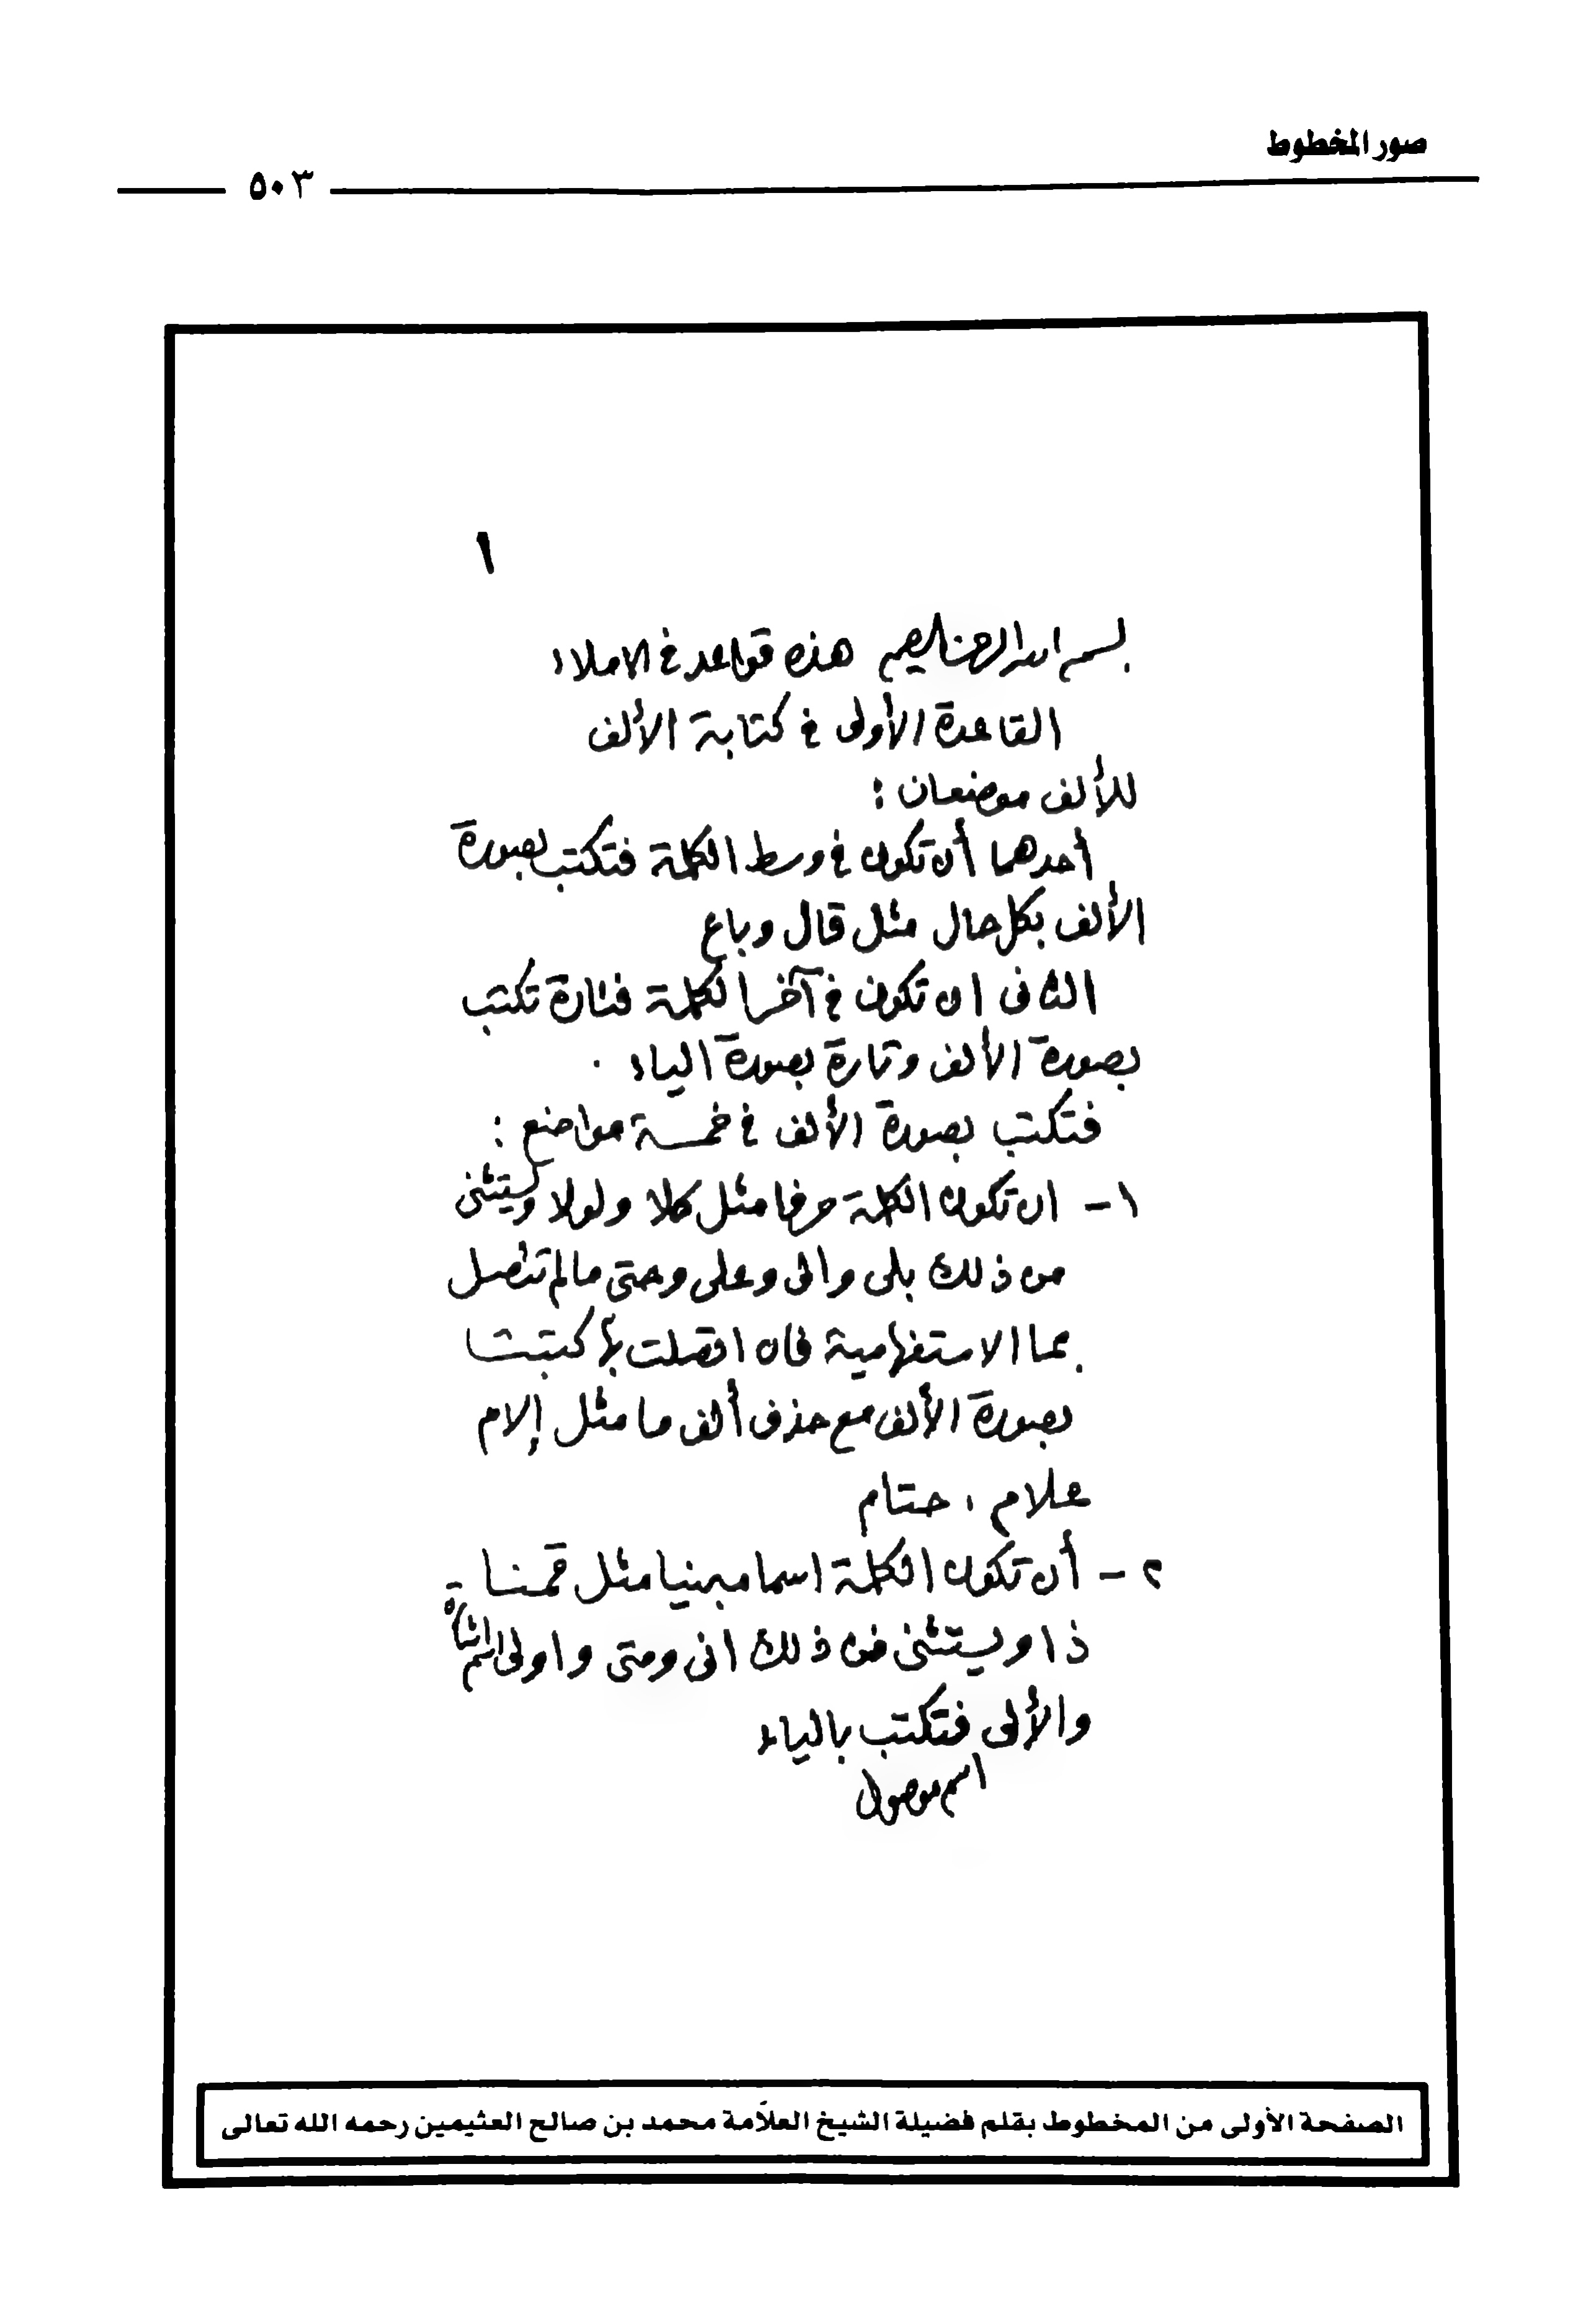 صور المخطوط
٥٠٣
١
بسم الله الرحمن الرحيم هذه قواعد في الاملاء
القاعدة الأولى في كتابة الألف
للألف موضعان :
أحدهما أن تكون في وسط الكلمة فتكتب بصورة
الألف بكل حال مثل قال وباع
الثانى ان تكون في آخر الكلمة فتارة تكتب
بصورة الألف وتارة بصورة الياء .
فتكتب بصورة الألف في خمسة مواضع :
١ - ان تكون الكلمة حرفا مثل كلا ولولا ويستثنى
من ذلك بلى والى وعلى وحتى ما لم تتصل
بما الاستفهامية فان اتصلت بها كتبت
بصورة الألف مع حذف ألف ما مثل إلام
علام ، حتام
٢ - أن تكون الكلمة اسما مبنيا مثل قمنا
ذا ويستثنى من ذلك انى ومتى واولى اسم اشارة
والألى فتكتب بالياء
اسم موصول
الصفحة الأولى من المخطوط بقلم فضيلة الشيخ العلاّمة محمد بن صالح العثيمين رحمه الله تعالى